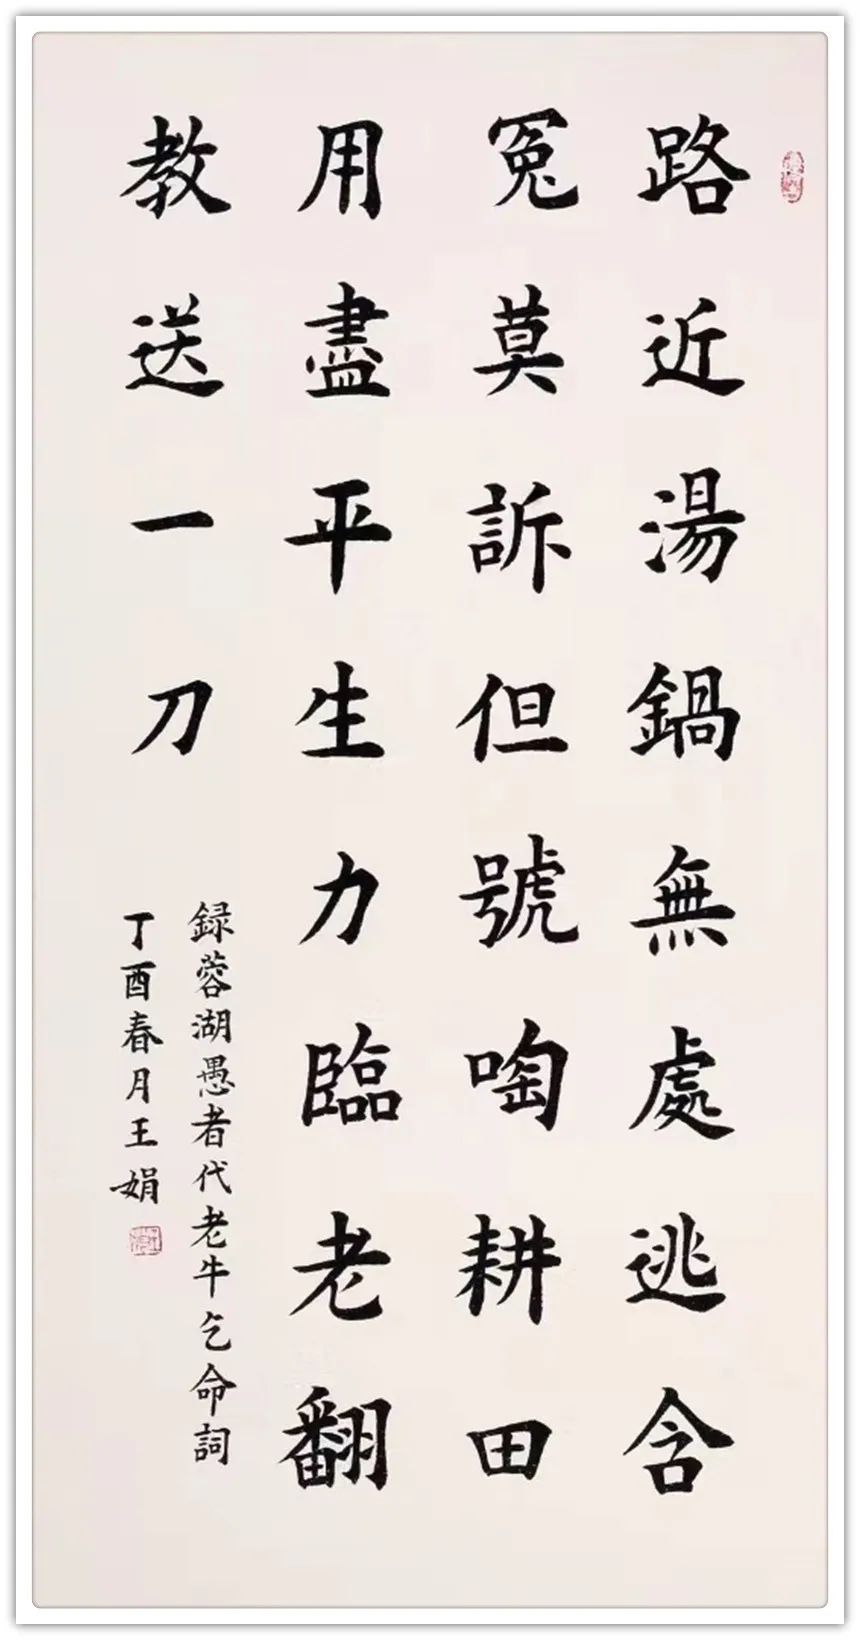 路近湯鍋無處逃含
冤莫訴但號啕耕田
用盡平生力臨老翻
教送一刀
録蓉湖愚者代老牛乞命詞
丁酉春月王娟